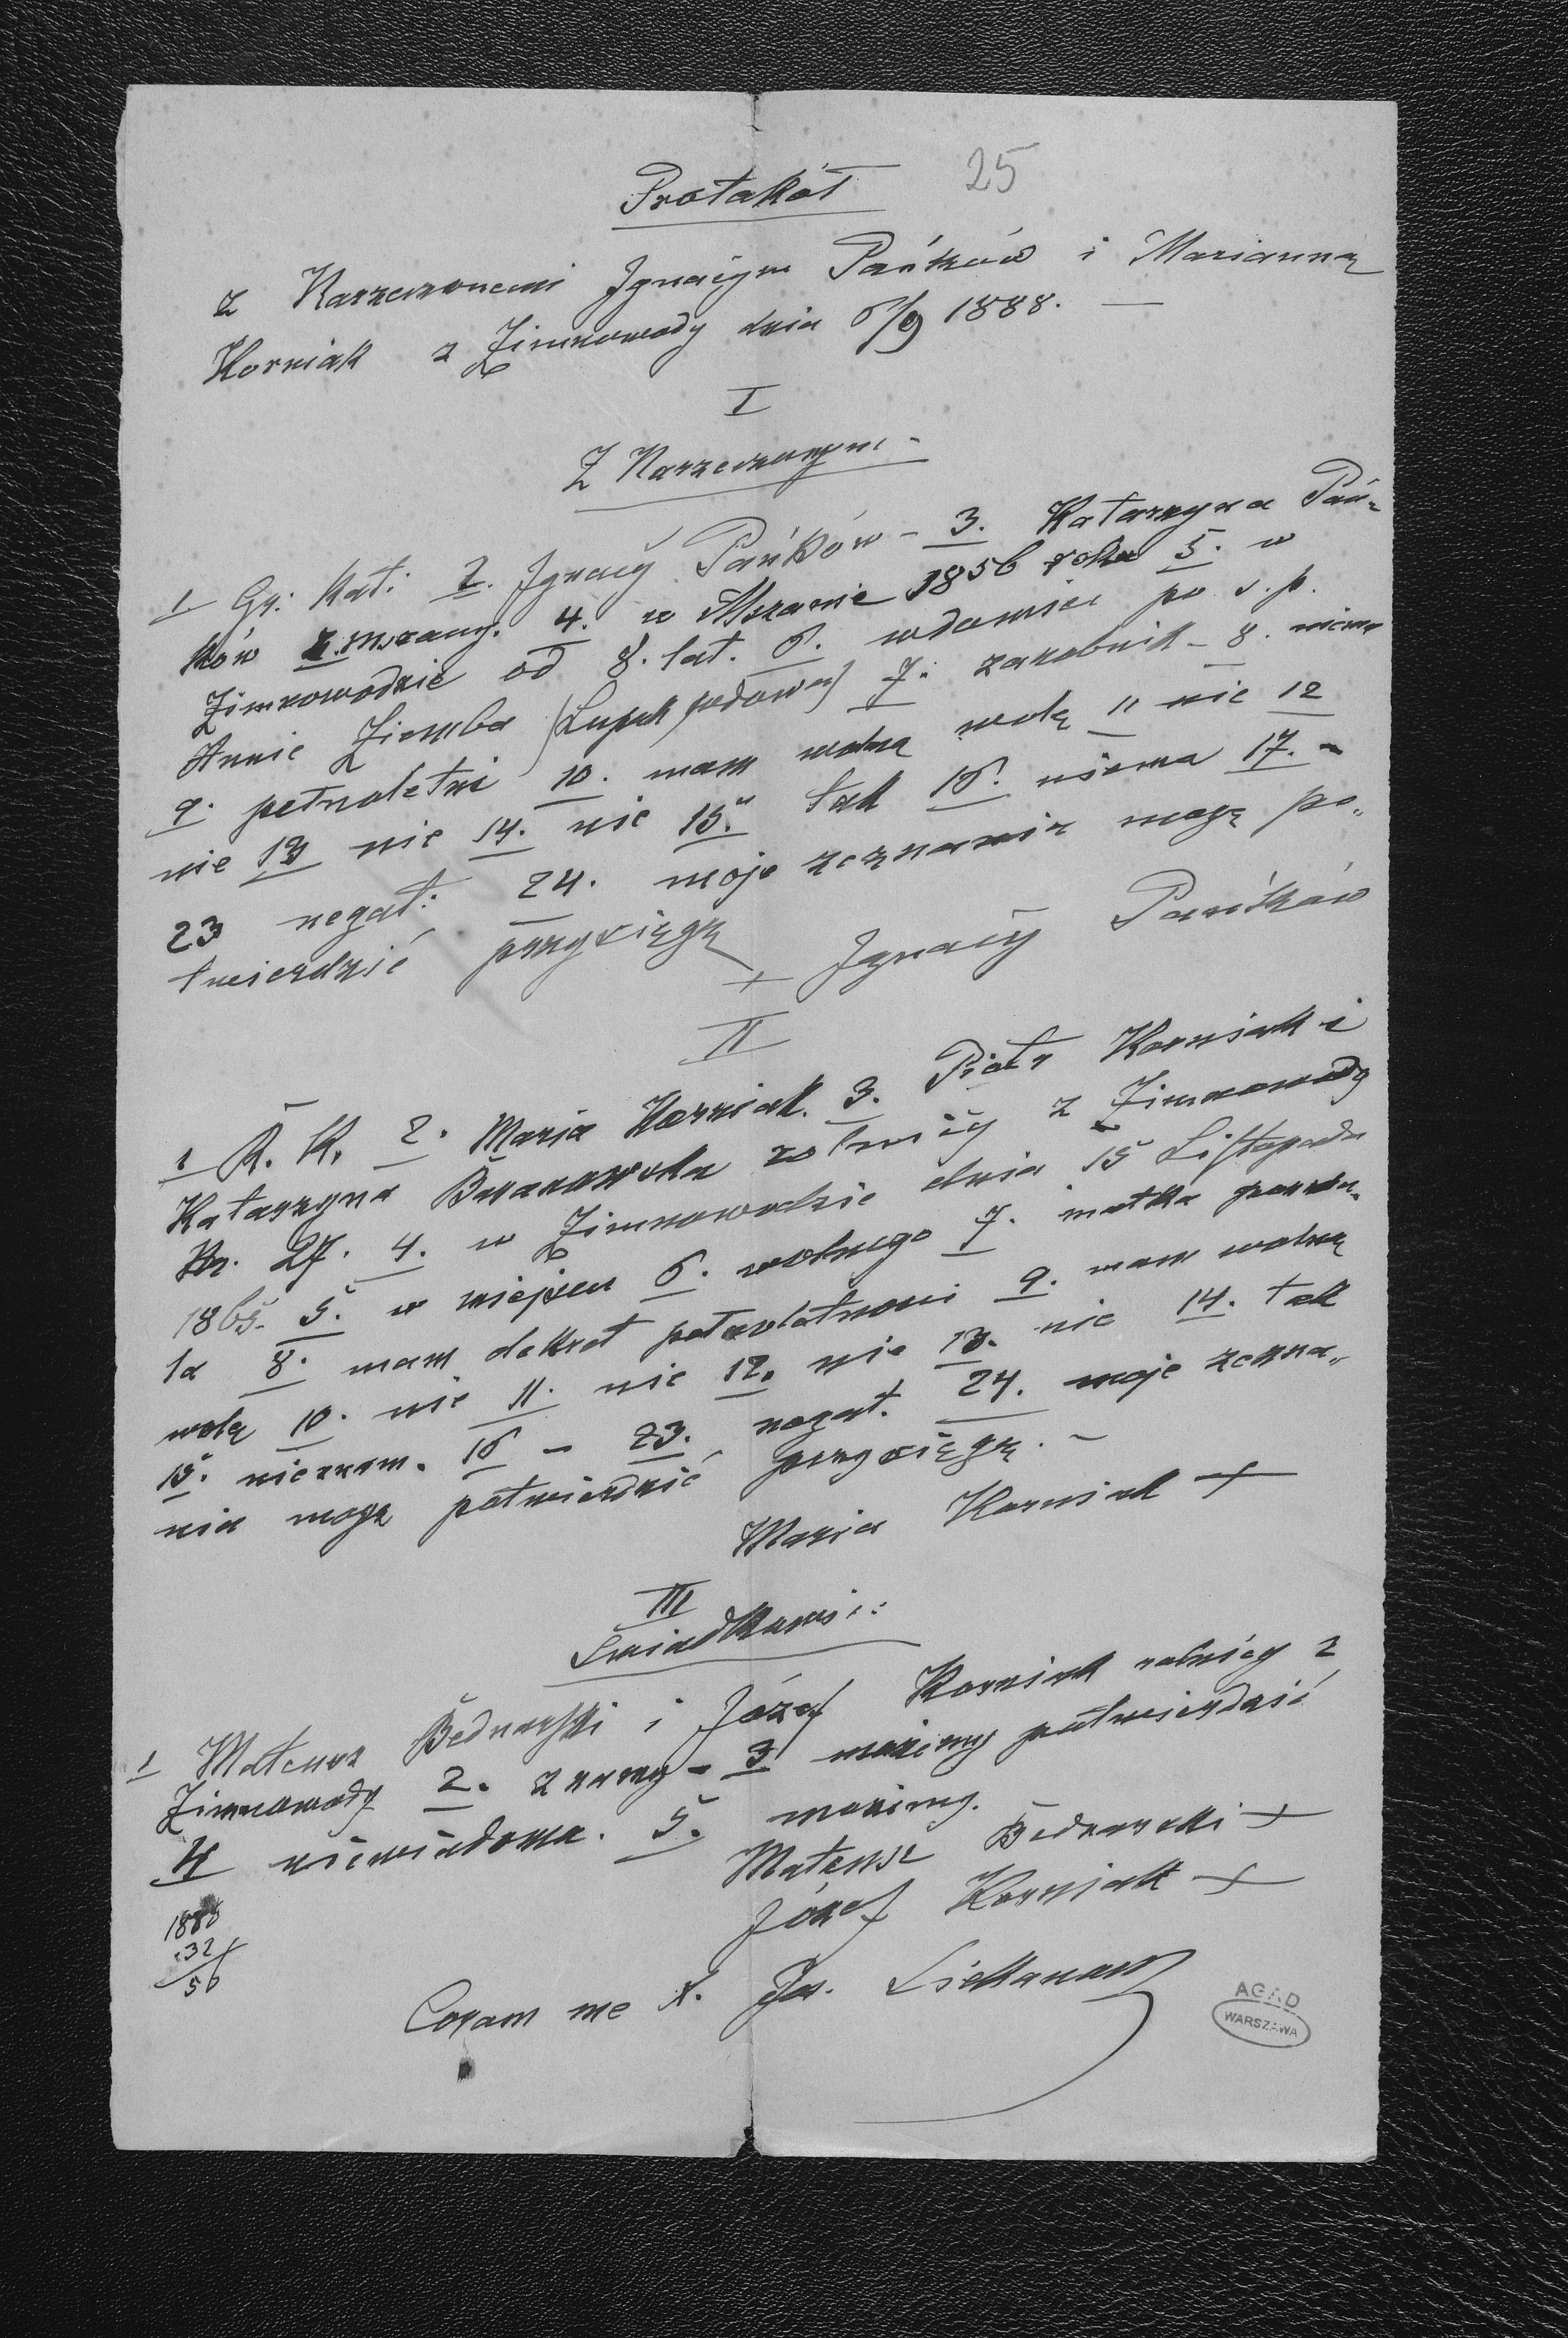 Protakół 25
z Narzeczonemi Ignacym Pańków i Marianną
Korniak z Zimnowody dnia 6/9 1888. —
I
Z Narzeczonym -
1 Gr: Kat: 2. Ignacy Pańków - 3. Katarzyna Pań-
ków z Mszany. 4. w Mszanie 1856 roku 5. w
Zimnowodzie od 8. lat. 6. wdowiec po ś. p.
Annie Ziemba 7. zarobnik - 8. niema
9. pełnoletni 10. mam wolną wolę 11 nie 12
nie 13 nie 14. nie 15. tak 16. niema 17. -
23 negat: 24. moje zeznania mogę po„
twierdzić przysięgą
+ Ignacy Pańków
II
1 R. K. 2. Maria Korniak. 3. Piotr Korniak i
Katarzyna rolnicy z Zimnowody
Nr. 27. 4. w Zimnowodzie dnia 15 Listopada
1865. 5. w miejscu 6. wolnego 7. matka
8. mam dekret pełnoletnosci 9. mam wolną
wolę 10. nie 11. nie 12. nie 13. nie 14. tak
15. nieznam. 16 - 23. negat. 24. moje zezna„
nia mogę potwierdzić przysięgą. -
Maria Korniak +
III
Swiadkowie:
1 Mateusz Bednarski i Józef Korniak rolnicy z
Zimnowody 2. znamy - 3 możemy potwierdzić
4 niewiadoma. 5. możemy.
Mateusz Bednarski +
Józef Korniak +
1888
32
56
Coram me X. Liskanam
AGAD
WARSZAWA